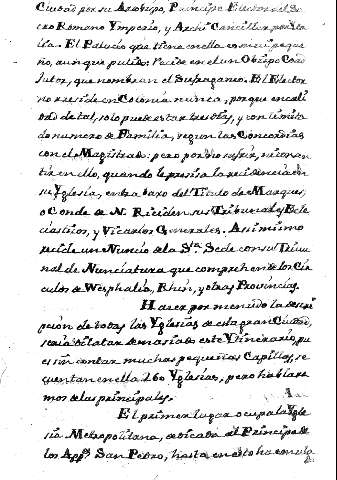 Ciudad por su Arzobispo, Principe Elector del S.
cro Romano Ymperio, y Archi Canciller por Ita
lia. El Palacio que tiene en ella es mui peque
ño, aunque pulido: reside en el un Obispo Coad
jutor, que nombran el Sufraganeo. El Elector
no reside en Colonia nunca, porque en cali
dad de tal, solo puede estar tres dias, y con limita
do numero de Familia, segun las Concordias
con el Magistrado: pero por no sufrir, ni consen
tir en ello, quando le precisa la residencia en
su Yglesia, entra baxo del Titulo de Marques,
o Conde de N. Residen sus Tribunales Ecle
siasticos, y Vicarios Generales. Asimismo
reside un Nuncio de la S.ta Sede con su Tribu
nal de Nunciatura que comprehende los Cir
culos de Westphalia, Rhin, y otras Provincias.
Hacer por menudo la descrip
pcion de todas las Yglesias de esta gran Ciudad,
seria dilatar demasiado este Ytinerario, pu
es sin contar muchas pequeñas Capillas, se
cuentan en ella 260 Yglesias, pero hablare
mos de las principales.
El primer lugar ocupa la Ygle
sia Metropolitana, dedicada al Principe de
los App.s San Pedro, hasta en esto ha